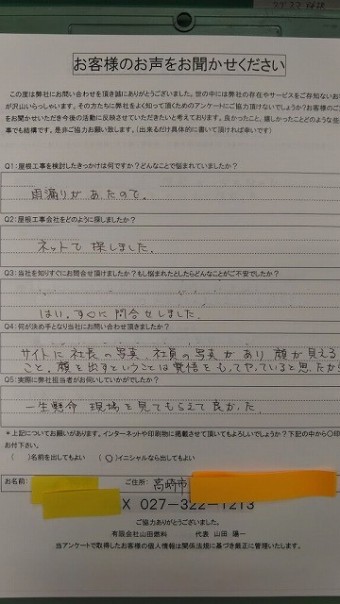 お客様のお声をお聞かせください
この度は弊社にお問い合わせを頂き誠にありがとうございました。世の中には弊社の存在やサービスをご存知ないお
が沢山いらっしゃいます。その方たちに弊社をよく知って頂くためのアンケートにご協力頂けないでしょうか？お客様のご
をお聞かせいただき今後の活動に反映させていただきたいと考えております。良かったこと、嬉しかったことどのような些
事でも結構です。是非ご協力お願い致します。（出来るだけ具体的に書いて頂ければ幸いです）
Q1：屋根工事を検討したきっかけは何ですか？どんなことで悩まれていましたか？
雨漏りがあたので。
Q2：屋根工事会社をどのように探しましたか？
ネットで探しました。
Q3：当社を知りすぐにお問合せ頂けましたか？もし悩まれたとしたらどんなことがご不安でしたか？
はい。すぐに問合せしました。
Q4：何が決め手となり当社にお問い合わせ頂きましたか？
サイトに社長の写真、社員の写真があり顔が見える
こと。顔を出すということは責任をもってやっていると思たから
Q5：実際に弊社担当者がお伺いしていかがでしたか？
一生懸命現場を見てもらえて良かた。
＊上記についてお願いがあります。インターネットや印刷物に掲載させて頂いてもよろしいでしょうか？下記の中から〇印
お付下さい。
（　）名前を出してもよい　（〇）イニシャルなら出してもよい
お名前　ご住所：高崎市
X 027-322-1213
ご協力ありがとうございました。
有限会社山田燃料　代表 山田 陽一
当アンケートで取得したお客様の個人情報は関係法規に基づき厳正に管理いたします。